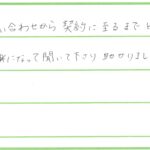 い合わせから契約に至るまで
になって聞いて下さり助かりまし